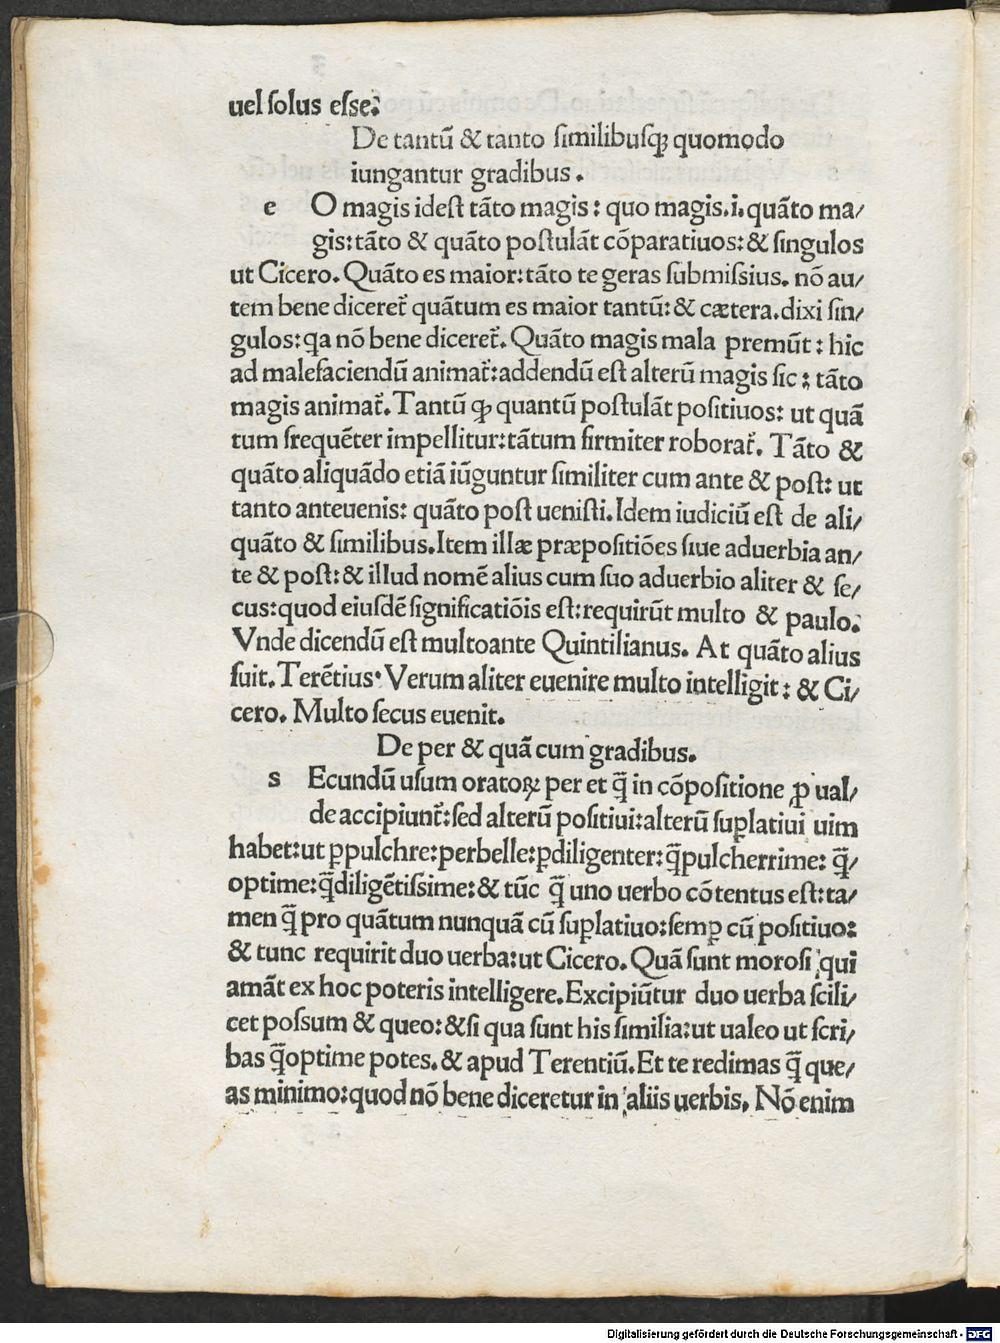 uel ſolus eſſe?
De tantũ & tanto ſimilibuſqꝫ quomodo
iungantur gradibus.
e O magis ideſt tãto magis: quo magis.i.quãto ma/
gis:tãto & quãto poſtulãt cõparatiuos:& ſingulos
ut Cicero. Quãto es maior:tãto te geras ſubmiſsius. nõ au/
tem bene diceret̃ quãtum es maior tantũ:& cætera.dixi ſin/
gulos:qa nõ bene diceret̃. Quãto magis mala premũt: hic
ad malefaciendũ animat̃:addendũ eſt alterũ magis ſic: tãto
magis animat̃. Tantũ qꝫ quantũ poſtulãt poſitiuos: ut quã
tum frequẽter impellitur:tãtum firmiter roborat̃. Tãto &
quãto aliquãdo etiã iũguntur ſimiliter cum ante & poſt: ut
tanto anteuenis: quãto poſt ueniſti. Idem iudiciũ eſt de ali/
quãto & ſimilibus. Item illæ præpoſitiões ſiue aduerbia an/
te & poſt:& illud nomẽ alius cum ſuo aduerbio aliter & ſe/
cus:quod eiuſdẽ ſignificatiõis eſt:requirũt multo & paulo.
Vnde dicendũ eſt multoante Quintilianus. At quãto alius
fuit. Terẽtius. Verum aliter euenire multo intelligit: & Ci/
cero. Multo ſecus euenit.
De per & quã cum gradibus.
s Ecundũ uſum oratoꝝ per et q̃ in cõpoſitione ꝓ ual/
de accipiunt̃:ſed alterũ poſitiui:alterũ ſuꝑlatiui uim
habet:ut ꝑpulchre:perbelle:ꝑdiligenter:q̃pulcherrime: q̃/
optime:q̃diligẽtiſsime:& tũc q̃ uno uerbo cõtentus eſt:ta/
men q̃ pro quãtum nunquã cũ ſuꝑlatiuo:ſemꝑ cũ poſitiuo:
& tunc requirit duo uerba:ut Cicero. Quã ſunt moroſi qui
amãt ex hoc poteris intelligere. Excipiũtur duo uerba ſcili/
cet poſsum & queo:&ſi qua ſunt his ſimilia:ut ualeo ut ſcri/
bas q̃optime potes. & apud Terentiũ. Et te redimas q̃ que/
as minimo:quod nõ bene diceretur in aliis uerbis. Nõ enim
Digitalisierung gefördert durch die Deutsche Forschungsgemeinschaft - DFG